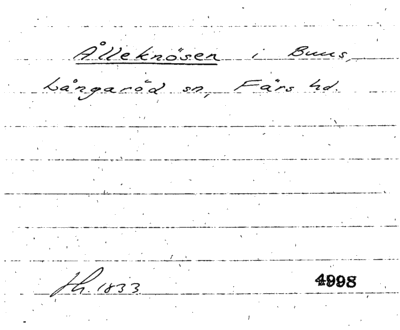 Ålleknösen i Buus,
Långaröd sn, Färs hd.
Jh. 1833 4998